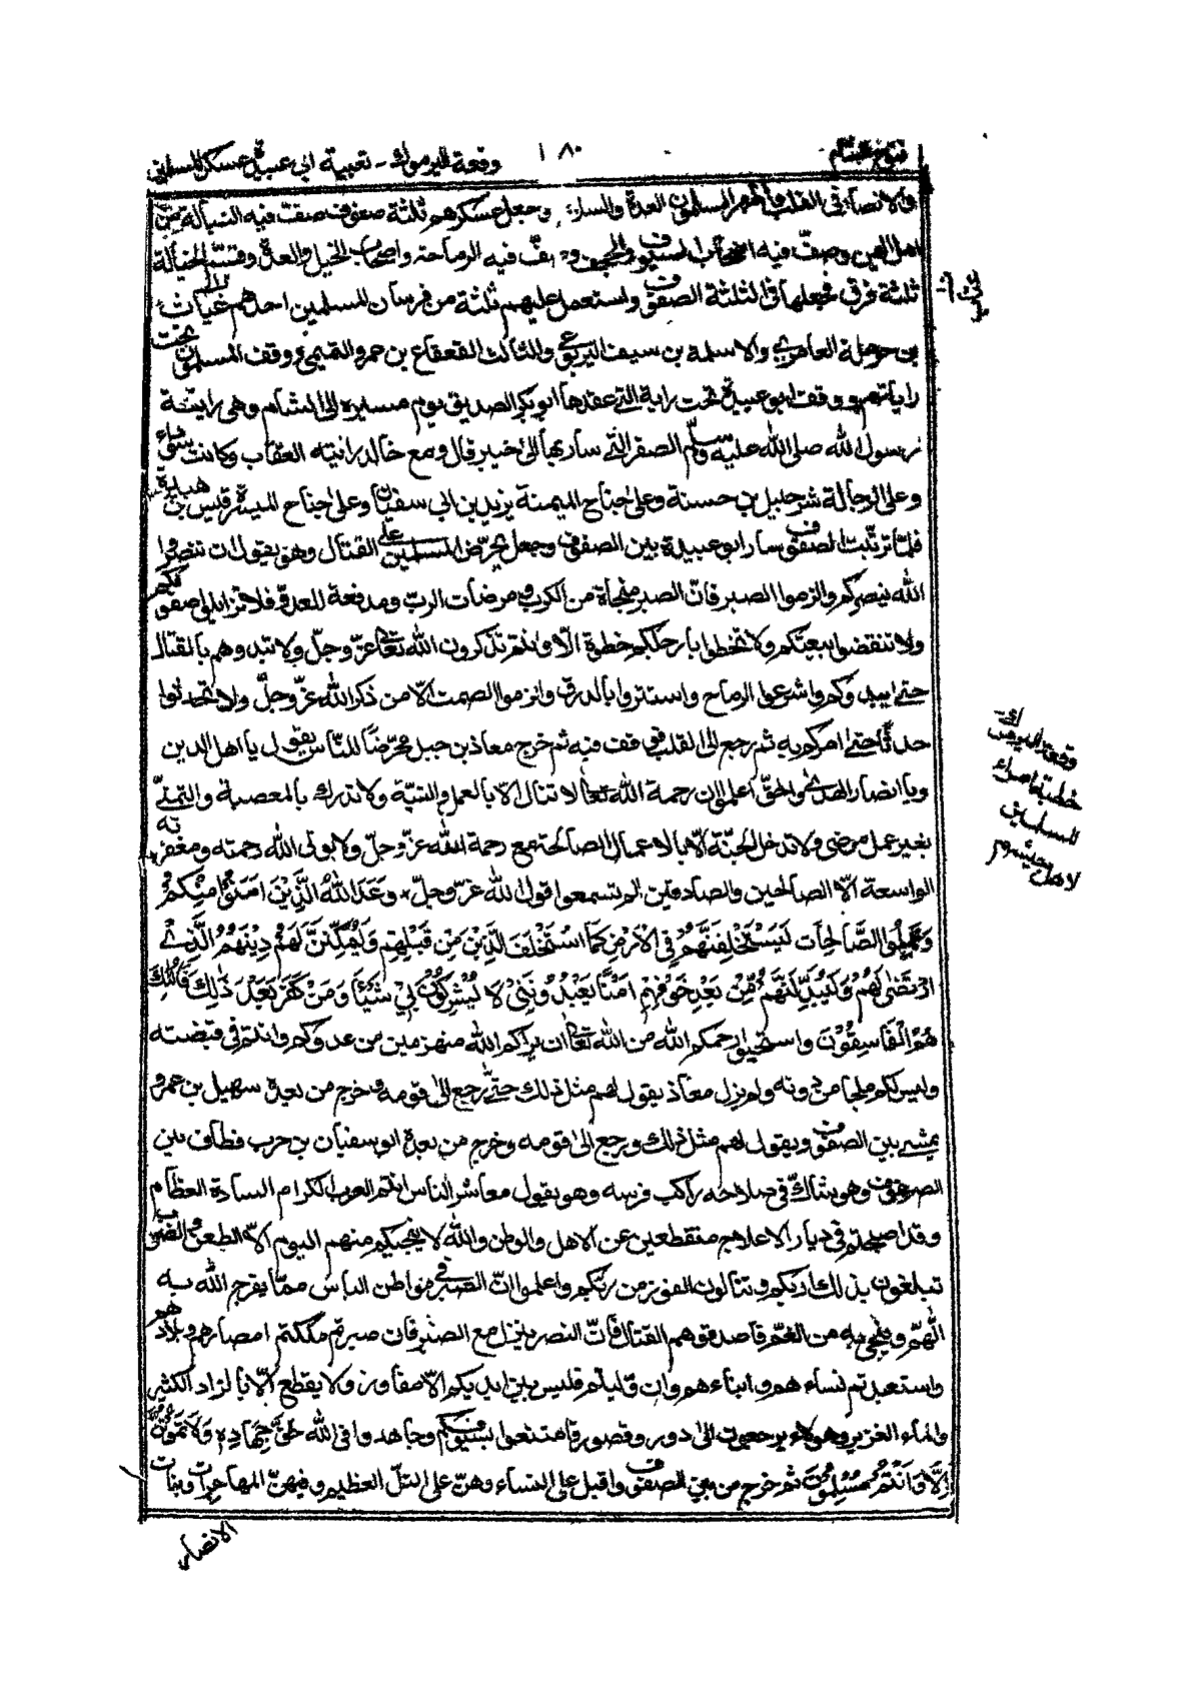 فتوح الشام ١٨٠ وقعة اليرموك - تعبية ابي عبيدة عسكر المسلمين
والانصار في القلب واظهر المسلمون العدة والسلاح وجعل عسكرهم ثلثة صفوف صفت فيه النبالة من
اهل اليمن وصفّ فيه اصحاب السيوف والحجف وصفّ فيه الرماحة واصحاب الخيل والعدة وقسّم الخيالة
ثلثة فرق فجعلها في الثلثة الصفوف واستعمل عليهم ثلثة من فرسان المسلمين احدهم غياث
بن حرملة العامري والاسلمة بن سيف اليربوعي والثالث القعقاع بن عمرو التميمي ووقف المسلمون تحت
راياتهم ووقف ابو عبيدة تحت راية التي عقدها ابو بكر الصديق يوم مسيره الى الشام وهي راية
رسول الله صلى الله عليه وسلّم الصفر التي سار بها الى خيبر قال ومع خالد رايته العقاب وكانت سوداء
وعلى الرجالة شرحبيل بن حسنة وعلى جناح الميمنة يزيد بن ابي سفيان وعلى جناح الميسرة قيس بن هبيرة
فلمّا ترتّبت الصفوف سار ابو عبيدة بين الصفوف وجعل يحرّض المسلمين على القتال وهو يقول ان تنصروا
الله ينصركم والزموا الصبر فانّ الصبر منجاة من الكرب ومرضات الربّ ومدفعة للعدوّ فلا تزايلوا صفوفكم
ولا تنقضوا ببعتكم ولا تخطوا بارجلكم خطوة الّا وانتم تذكرون الله تعالى عزّ وجلّ ولا تبدوهم بالقتال
حتى ايبدوكم واشرعوا الرماح واستتروا بالدرق والزموا الصمت الّا من ذكر الله عزّ وجلّ ولا تحدثوا
حدثًا حتى امركم به ثم رجع الى القلب فوقف فيه ثم خرج معاذ بن جبل محرّضًا للنّاس يقول يا اهل الدين
ويا انصار الهدى والحقّ اعلموا ان رحمة الله تعالى لا تنال الّا بالعمل والنيّة ولا تدرك بالمعصية والتمنّي
بغير عمل مرضي ولا تدخل الجنّة الّا بالاعمال الصالحة مع رحمة الله عزّ وجلّ ولا يولي الله رحمته ومغفرته
الواسعة الّا الصالحين والصادقين الم تسمعوا قول الله عزّ وجلّ وَعَدَ اللهُ الَّذِيْنَ اٰمَنُوْا مِنْكُمْ
وَعَمِلُوا الصَّالِحَاتِ لَيَسْتَخْلِفَنَّهُمْ فِي الْاَرْضِ كَمَا اسْتَخْلَفَ الَّذِيْنَ مِنْ قَبْلِهِمْ وَلَيُمَكِّنَنَّ لَهُمْ دِيْنَهُمُ الَّذِيْ
ارْتَضٰى لَهُمْ وَلَيُبَدِّلَنَّهُمْ مِّنْ بَعْدِ خَوْفِهِمْ اَمْنًا يَعْبُدُوْنَنِيْ لَا يُشْرِكُوْنَ بِيْ شَيْئًا وَمَنْ كَفَرَ بَعْدَ ذٰلِكَ فَاُولٰئِكَ
هُمُ الْفَاسِقُوْنَ واستحيوا رحمكم الله من الله تعالى ان يراكم الله منهزمين من عدوكم وانتم في قبضته
وليس لكم ملجا من دونه ولم يزل معاذ يقول لهم مثل ذلك حتى رجع الى قومه وخرج من بعده سهيل بن عمرو
يمشي بين الصفوف ويقول لهم مثل ذلك ورجع الى قومه وخرج من بعده ابو سفيان بن حرب فطاف بين
الصفوف وهو شاكّ في سلاحه راكب فرسه وهو يقول معاشر الناس انتم العرب الكرام السادة العظام
وقد اصبحتم في ديار الاعلاج منقطعين عن الاهل والوطن والله لا ينجيكم منهم اليوم الّا الطعن والضرب
تبلغون بذلك اربكم وتنالون الفوز من ربّكم واعلموا انّ الصبر في مواطن الباس ممّا يفرج الله به
الهمّ وينجي به من الغمّ فاصدقوهم القتال فانّ النصر ينزل مع الصبر فان صبرتم ملكتم امصارهم وبلادهم
واستعبدتم نساءهم وابناءهم وان وليتم فليس بين ايديكم الّا مفاوز ولا يقطع الّا بالزاد الكثير
والماء الغزير وهولاء يرجعون الى دور وقصور فامتنعوا بسيوفكم وجاهدوا في الله حَقَّ جِهَادِهٖ وَلَا تَمُوْتُنَّ
اِلَّا وَاَنْتُمْ مُسْلِمُوْنَ ثم خرج من بين الصفوف واقبل على النساء وهنّ على التلّ العظيم وفيهنّ المهاجرات وبنات
الانصار
وقعة اليرموك
خطبة امراء
المسلمين
لاهل جيشهم